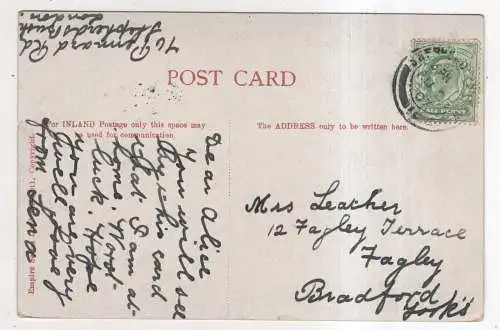 76 Pennard Rd
Shepherds Bush
London.
POST CARD
For INLAND Postage only this space may
be used for communication.
The ADDRESS only to be written here.
Dear Alice
You will see
by this card
that I am at
home. Worst
luck. Hope
you are very
well. Love
from Lena
Mrs Leather
12 Fagley Terrace
Fagley
Bradford
Yorks
Empire S
Copyright.